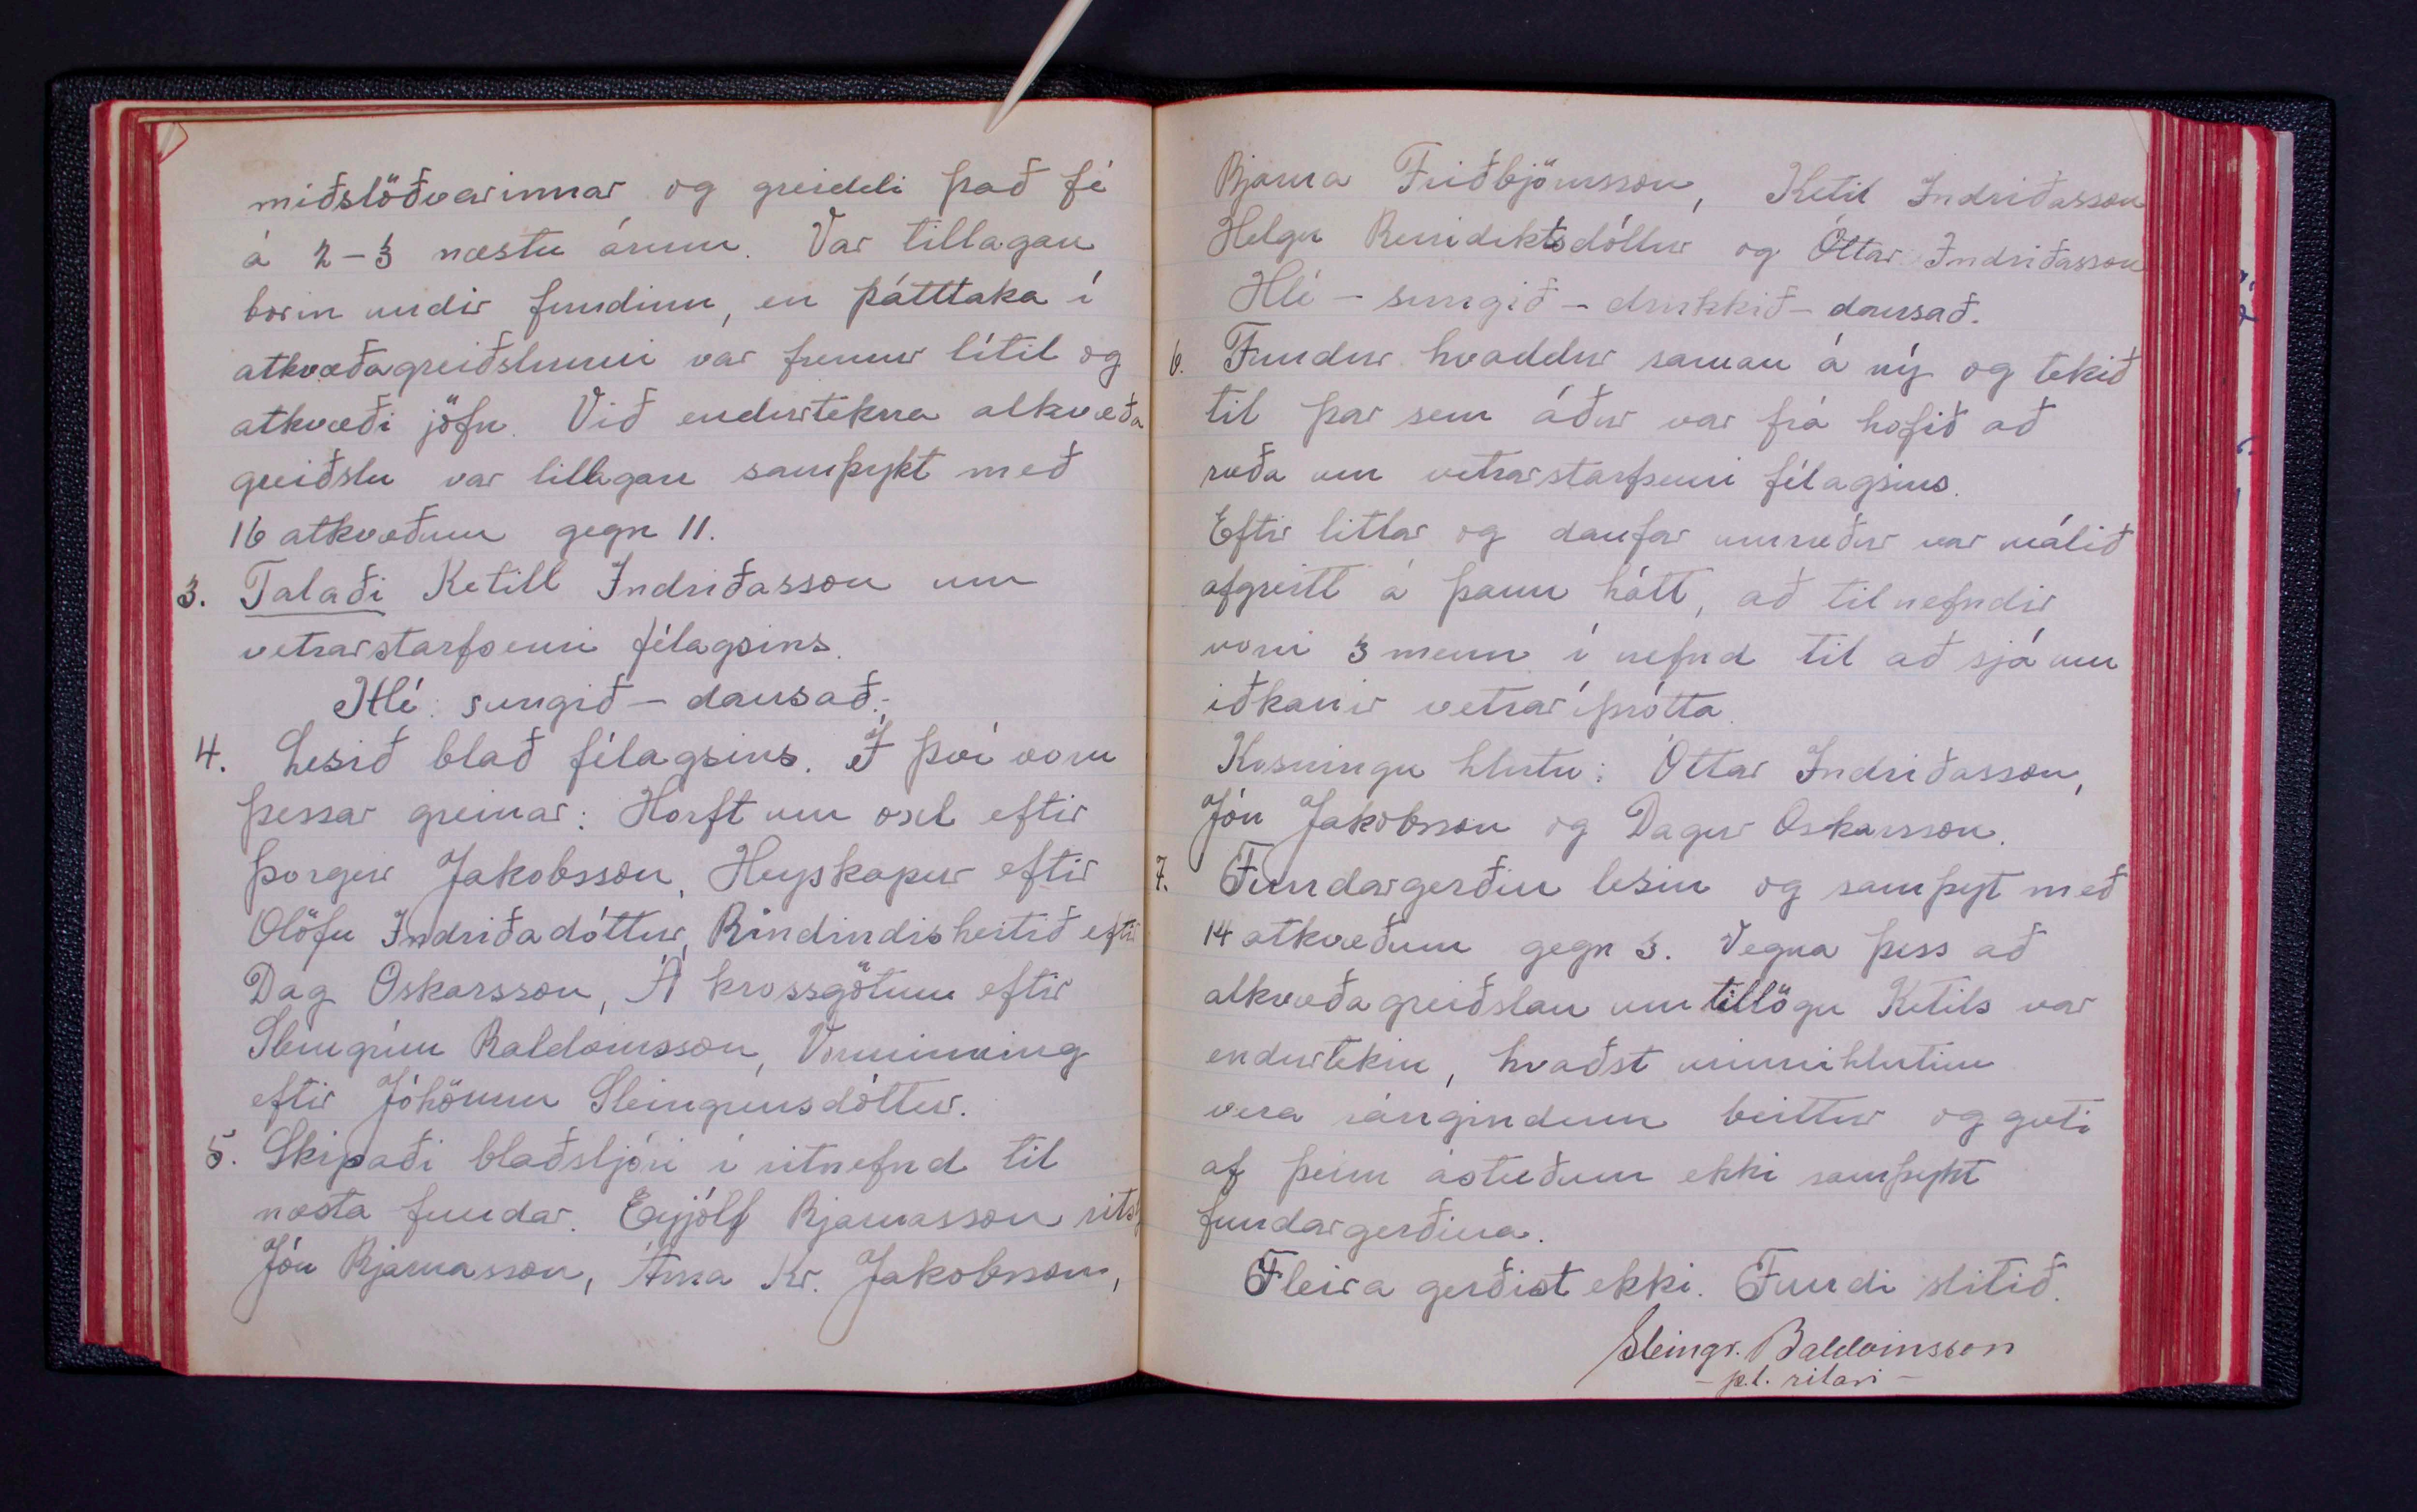 miðstöðvarinnar og greiddi það fé
á 2-3 næstu árum. Var tillagan
borin undir fundinn, en þátttaka í
atkvæðagreiðslunni var fremur lítil og
atkvæði jöfn. Við endurtekna atkvæða
greiðslu var tillagan samþykt með
16 atkvæðum gegn 11.
3. Talaði Ketill Indriðasson um
vetrarstarfsemi félagsins.
Hlé: sungið - dansað.-
4. Lesið blað félagsins. Í því voru
þessar greinar: Horft um oxl eftir
Þorgeir Jakobsson, Heyskapur eftir
Olöfu Indriðadóttur, Bindindisheitið eftir
Dag Oskarsson, Á krossgötum eftir
Steingrím Baldvinsson, Vorminning
eftir Jóhönnu Steingrímsdóttur.
5. Skipaði blaðstjóri í ritnefnd til
næsta fundar. Eyjólf Bjarnasson ritstj
Jón Bjarnasson, Árna Kr. Jakobsson,
Bjarna Friðbjörnsson, Ketil Indriðasson
Helgu Benidiktsdóttur og Óttar Indriðasson
Hlé - sungið - drukkið - dansað.
6. Fundur hvaddur saman á ný og tekið
til þar sem áður var frá hofið að
ræða um vetrarstarfsemi félagsins.
Eftir litlar og daufar umræður var málið
afgreitt á þann hátt, að tilnefndir
voru 3 menn í nefnd til að sjá um
iðkanir vetraríþrótta.
Kosningu hlutu: Óttar Indriðasson,
Jón Jakobsson og Dagur Oskarsson.
7. Fundargerðin lesin og samþyt með
14 atkvæðum gegn 3. Vegna þess að
atkvæðagreiðslan um tillögu Ketils var
endurtekin, kvaðst minnihlutinn
vera rángindum beittur og gæti
af þeim ástæðum ekki samþykt
fundargerðina.
Fleira gerðist ekki. Fundi slitið.
Steingr. Baldvinsson
- p.t. ritari -